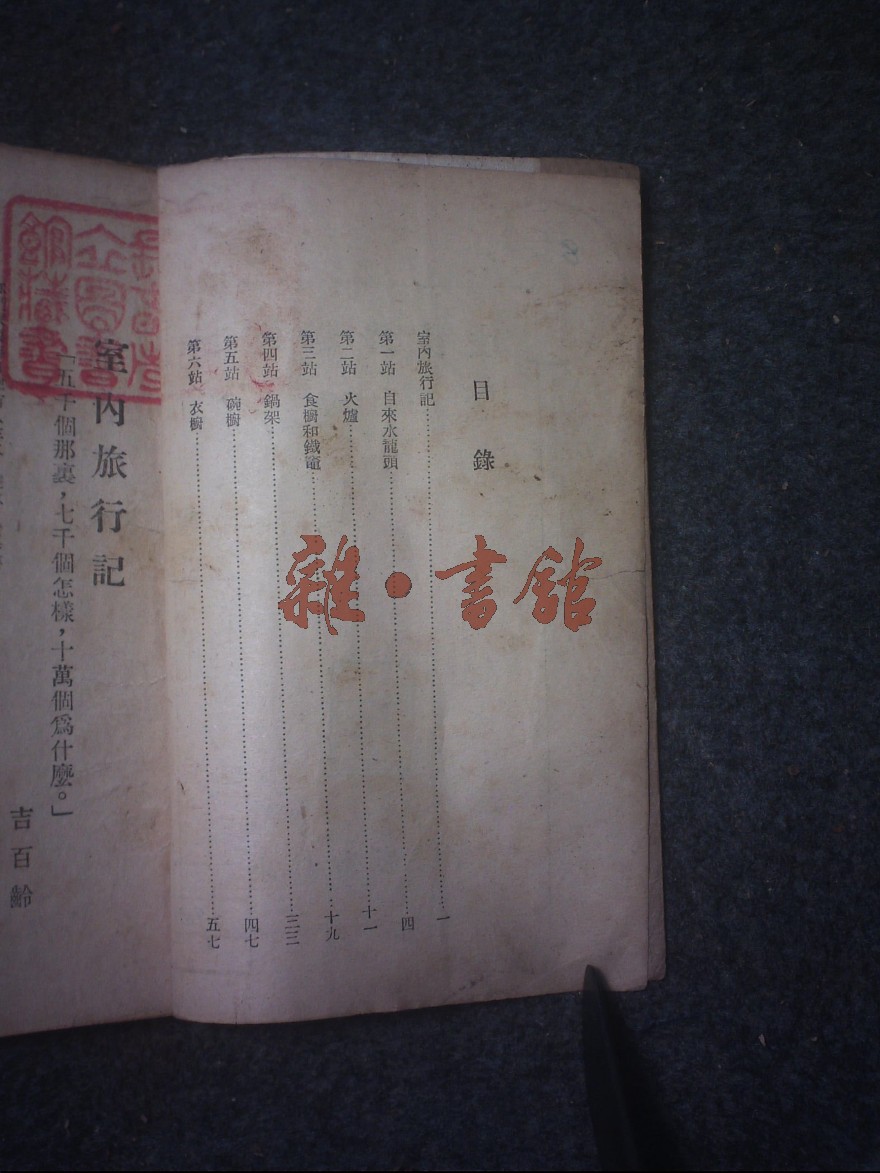 目錄
室內旅行記……一
第一站 自來水龍頭……四
第二站 火爐……十一
第三站 食櫥和鐵竈……十九
第四站 鍋架……三三
第五站 碗櫥……四七
第六站 衣櫥……五七
室內旅行記
「五千個那裏，七千個怎樣，十萬個爲什麼。」
吉百齡
雜·書館